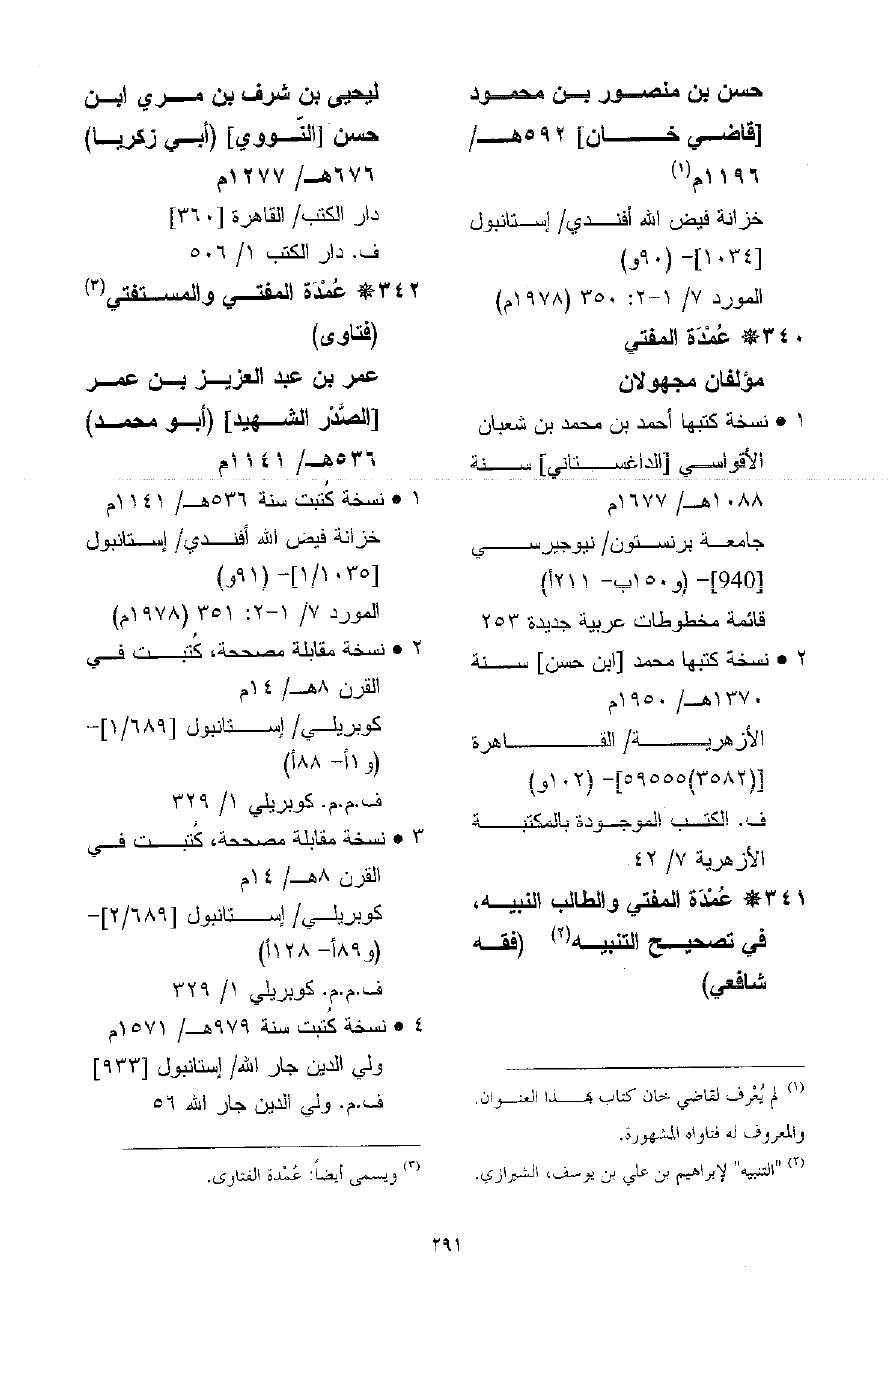 حسن بن منصور بن محمود
[قاضي خان] ٥٩٢هـ/
١١٩٦م(١)
خزانة فيض الله أفندي/ إستانبول
[١٠٣٤]- (٩٠و)
المورد ٧/ ١-٢: ٣٥٠ (١٩٧٨م)
٣٤٠* عُمْدَة المفتي
مؤلفان مجهولان
١ • نسخة كتبها أحمد بن محمد بن شعبان
الأقواسي [الداغستاني] سنة
١٠٨٨هـ/ ١٦٧٧م
جامعة برنستون/ نيوجيرسي
[940]- (و١٥٠ب- ٢١١أ)
قائمة مخطوطات عربية جديدة ٢٥٣
٢ • نسخة كتبها محمد [ابن حسن] سنة
١٣٧٠هـ/ ١٩٥٠م
الأزهرية/ القاهرة
[(٣٥٨٢)٥٩٥٥٥]- (١٠٢و)
ف. الكتب الموجودة بالمكتبة
الأزهرية ٧/ ٤٢
٣٤١* عُمْدَة المفتي والطالب النبيه،
في تصحيح التنبيه(٢) (فقه
شافعي)
(١) لم يُعْرف لقاضي خان كتاب بهذا العنوان.
والمعروف له فتاواه المشهورة.
(٢) "التنبيه" لإبراهيم بن علي بن يوسف، الشيرازي.
ليحيى بن شرف بن مري ابن
حسن [النَّووي] (أبي زكريا)
٦٧٦هـ/ ١٢٧٧م
دار الكتب/ القاهرة [٣٦٠]
ف. دار الكتب ١/ ٥٠٦
٣٤٢* عُمْدَة المفتي والمستفتي(٣)
(فتاوى)
عمر بن عبد العزيز بن عمر
[الصَّدْر الشهيد] (أبو محمد)
٥٣٦هـ/ ١١٤١م
١ • نسخة كُتبت سنة ٥٣٦هـ/ ١١٤١م
خزانة فيض الله أفندي/ إستانبول
[١/١٠٣٥]- (٩١و)
المورد ٧/ ١-٢: ٣٥١ (١٩٧٨م)
٢ • نسخة مقابلة مصححة، كُتبت في
القرن ٨هـ/ ١٤م
كوبريلي/ إستانبول [١/٦٨٩]-
(و١أ- ٨٨أ)
ف.م.م. كوبريلي ١/ ٣٢٩
٣ • نسخة مقابلة مصححة، كُتبت في
القرن ٨هـ/ ١٤م
كوبريلي/ إستانبول [٢/٦٨٩]-
(و٨٩أ- ١٢٨أ)
ف.م.م. كوبريلي ١/ ٣٢٩
٤ • نسخة كُتبت سنة ٩٧٩هـ/ ١٥٧١م
ولي الدين جار الله/ إستانبول [٩٣٣]
ف.م. ولي الدين جار الله ٥٦
(٣) ويسمى أيضاً: عُمْدة الفتاوى.
٢٩١